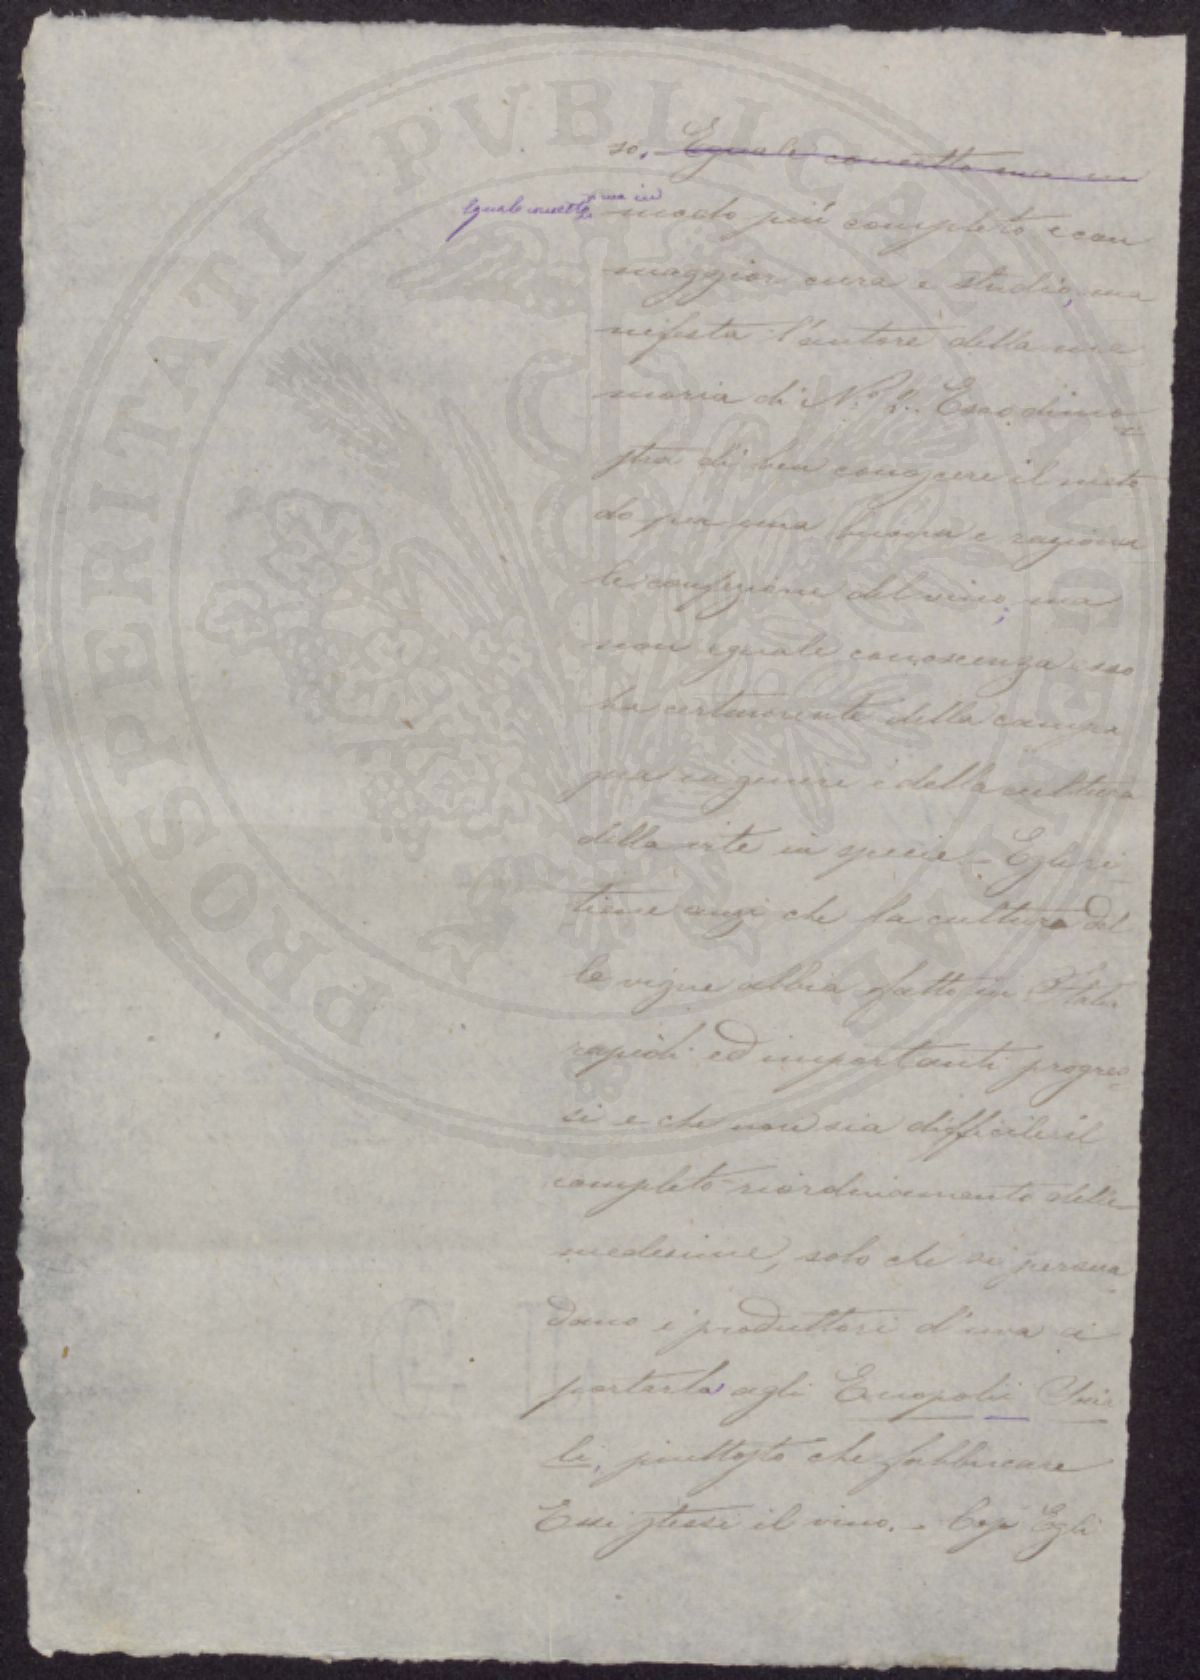 so. Eguale concetto ma in
Eguale concetto, ma in
modo più completo e con
maggior cura e studio, ma
nifesta l'autore della me
moria di N.º 2. Esso dimo
stra di ben conoscere il meto
do per una buona e raziona
le confezione del vino; ma
non eguale conoscenza esso
ha certamente della campa
gna in genere e della cultura
della vite in specie. Egli ri
tiene anzi che la cultura del
le vigne abbia fatto in Italia
rapidi ed importanti progres
si e che non sia difficile il
completo riordinamento delle
medesime, solo che si persua
dano i produttori d'uva a
portarla agli Enopolii Socia
li, piuttosto che fabbricare
Essi stessi il vino. - Egli
PROSPERITATI PVBLICAE AVGENDAE